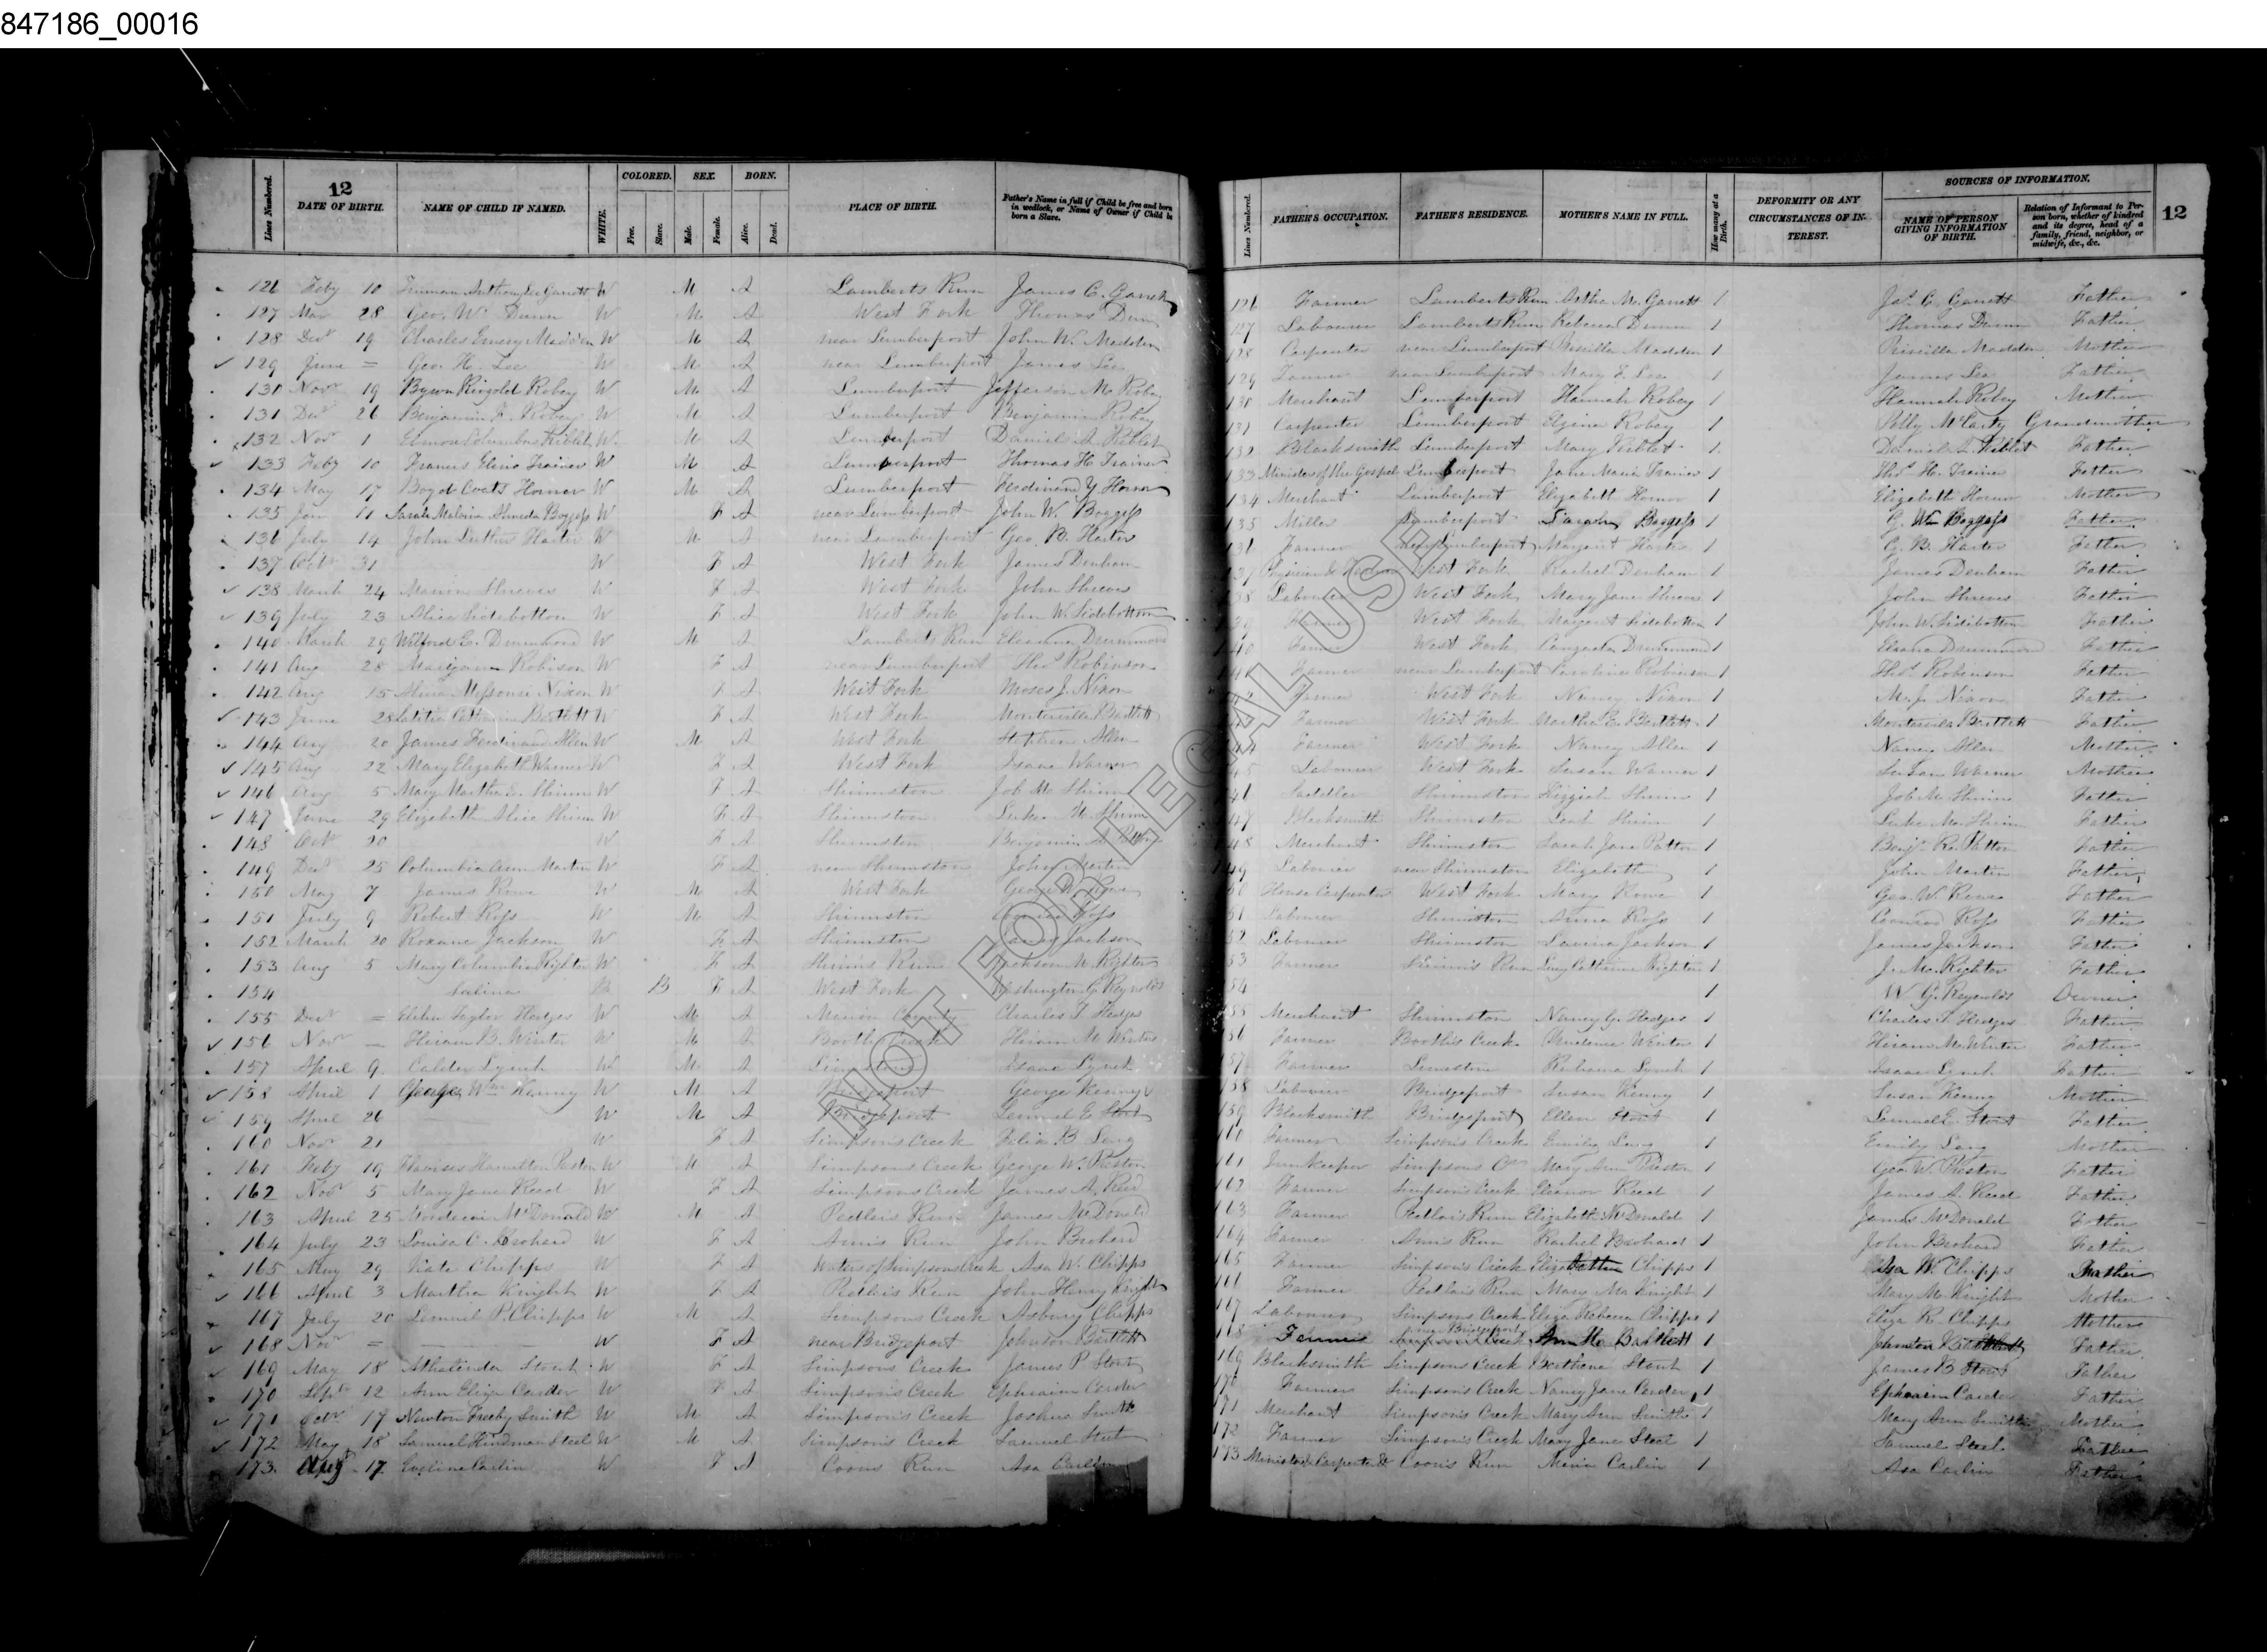 847186_00016
12
Lines Numbered. DATE OF BIRTH. NAME OF CHILD IF NAMED. WHITE. COLORED. Free. Slave. SEX. Male. Female. BORN. Alive. Dead. PLACE OF BIRTH. Father's Name in full if Child be free and born in wedlock, or Name of Owner if Child be born a Slave.
Lines Numbered. FATHER'S OCCUPATION. FATHER'S RESIDENCE. MOTHER'S NAME IN FULL. How many at a Birth. DEFORMITY OR ANY CIRCUMSTANCES OF INTEREST. SOURCES OF INFORMATION. NAME OF PERSON GIVING INFORMATION OF BIRTH. Relation of Informant to Person born, whether of kindred and its degree, head of a family, friend, neighbor, or midwife, &c., &c. 12
126 Feby 10 Garrett W M A Lamberts Run James C. Garrett
127 Mar 28 Geo. Wm Dunn W M A West Fork Thomas Dunn
128 Decr 19 Charles Emery Madden W M A near Lumberport John W. Madden
129 June = Geo. H. Lee W M A near Lumberport James Lee
130 Novr 19 Byron Ringold Robey W M A Lumberport Jefferson M. Robey
131 Decr 26 Benjamin F. Robey W M A Lumberport Benjamin Robey
132 Novr 1 Columbus Riblet W M A Lumberport Daniel A. Riblet
133 Feby 10 Francis Trainer W M A Lumberport Thomas H. Trainer
134 May 17 Boyd Coats Hornor W M A Lumberport Ferdinand Y Hornor
135 Jan 11 Sarah Malvina Almeda Boggess W F A near Lumberport John W. Boggess
136 July 14 John Luther Harter W M A near Lumberport Geo. B. Harter
137 Octr 31 W F A West Fork James Denham
138 March 24 Marion Shreves W F A West Fork John Shreves
139 July 23 Alice Sidebottom W F A West Fork John W. Sidebottom
140 March 29 Wilford E. Drummond W M A Lamberts Run Drummond
141 Aug 28 Robinson W F A near Lumberport Thos Robinson
142 Aug 15 Missouri Nixon W F A West Fork Moses J. Nixon
143 June 28 Letitia Catherine Bartlett W F A West Fork Monterville Bartlett
144 Aug 20 James Ferdinand Allen W M A West Fork Stephen Allen
145 Aug 22 Mary Elizabeth Warner W F A West Fork Isaac Warner
146 Aug 5 Mary Martha E. Shinn W F A Shinnston Job M. Shinn
147 June 29 Elizabeth Alice Shinn W F A Shinnston Luke M. Shinn
148 Octr 20 W F A Shinnston Benjamin R. Patton
149 Decr 25 Columbia Ann Martin W F A near Shinnston John Martin
150 May 7 James Rowe W M A West Fork George W. Rowe
151 July 9 Robert Ross W M A Shinnston Ross
152 March 20 Roxane Jackson W F A Shinnston James Jackson
153 Aug 5 Mary Columbia Righter W F A Shinns Run Jackson M. Righter
154 Salina B F A West Fork Washington G. Reynolds
155 Decr = Taylor Hedges W M A Marion County Charles T. Hedges
156 Novr Hiram B. Winter W M A Booths Creek Hiram M. Winter
157 April 9 Calder Lynch W M A Isaac Lynch
158 April 1 George Wm Kenny W M A Bridgeport George Kenny
159 April 26 W M A Bridgeport Lemuel E. Stout
160 Novr 21 W F A Simpsons Creek B Lang
161 Feby 19 Hamilton Preston W M A Simpsons Creek George W. Preston
162 Novr 5 Mary Jane Reed W F A Simpsons Creek James A. Reed
163 April 25 Mordecai McDonald W M A Pedlar's Run James McDonald
164 July 23 Louisa C. Brohard W F A Ann's Run John Brohard
165 May 29 Kate Chipps W F A Waters of Simpsons Creek Asa W. Chipps
166 April 3 Martha Knight W F A Pedlar's Run John Henry Knight
167 July 20 Lemuel P. Chipps W M A Simpsons Creek Asbury Chipps
168 Novr = W F A near Bridgeport Johnston Bartlett
169 May 18 Athalinda Stout W F A Simpsons Creek James P Stout
170 Septr 12 Ann Eliza Carder W F A Simpson's Creek Ephraim Carder
171 Octr 17 Newton Smith W M A Simpson's Creek Joshua Smith
172 May 18 Samuel Hindman Steel W M A Simpson's Creek Samuel Steel
173 Aug 17 Eveline Carlin W F A Coons Run Asa Carlin
126 Farmer Lamberts Run M. Garrett 1 Jas. C. Garrett Father
127 Labourer Lamberts Run Rebecca Dunn 1 Thomas Dunn Father
128 Carpenter near Lumberport Priscilla Madden 1 Priscilla Madden Mother
129 Farmer near Lumberport Mary Lee 1 James Lee Father
130 Merchant Lumberport Hannah Robey 1 Hannah Robey Mother
131 Carpenter Lumberport Robey 1 Polly McCarty Grandmother
132 Blacksmith Lumberport Mary Riblet 1 Daniel Riblet Father
133 Minister of the Gospel Lumberport Jane Maria Trainer 1 Thos. H. Trainer Father
134 Merchant Lumberport Elizabeth Hornor 1 Elizabeth Hornor Mother
135 Miller Lumberport Sarah Boggess 1 Boggess Father
136 Farmer near Lumberport Margaret Harter 1 G. B. Harter Father
137 Physician & Farmer West Fork Rachel Denham 1 James Denham Father
138 Labourer West Fork Mary Jane Shreves 1 John Shreves Father
139 Farmer West Fork Margaret Sidebottom 1 John W. Sidebottom Father
140 Farmer West Fork Drummond 1 Drummond Father
141 Farmer near Lumberport Caroline Robinson 1 Thos. Robinson Father
142 Farmer West Fork Nancy Nixon 1 M. J. Nixon Father
143 Farmer West Fork Martha E. Bartlett 1 Bartlett Father
144 Farmer West Fork Nancy Allen 1 Nancy Allen Mother
145 Labourer West Fork Susan Warner 1 Susan Warner Mother
146 Saddler Shinnston Shinn 1 Job M. Shinn Father
147 Blacksmith Shinnston Leah Shinn 1 Luke M. Shinn Father
148 Merchant Shinnston Sarah Jane Patton 1 Benj. R. Patton Father
149 Labourer near Shinnston Elizabeth 1 John Martin Father
150 House Carpenter West Fork Mary Rowe 1 Geo. W. Rowe Father
151 Labourer Shinnston Anna Ross 1 Ross Father
152 Labourer Shinnston Lavina Jackson 1 James Jackson Father
153 Farmer Shinn's Run Lucy Catherine Righter 1 J. M. Righter Father
154 1 W. G. Reynolds Owner
155 Merchant Shinnston Nancy G. Hedges 1 Charles T. Hedges Father
156 Farmer Booth's Creek Prudence Winter 1 Hiram M. Winter Father
157 Farmer Lynch 1 Isaac Lynch Father
158 Labourer Bridgeport Susan Kenny 1 Susan Kenny Mother
159 Blacksmith Bridgeport Ellen Stout 1 Lemuel E. Stout Father
160 Farmer Simpson's Creek Emily Lang 1 Emily Lang Mother
161 Innkeeper Simpsons Cr Mary Ann Preston 1 Geo. W. Preston Father
162 Farmer Simpson's Creek Eleanor Reed 1 James A. Reed Father
163 Farmer Pedlar's Run Elizabeth McDonald 1 James McDonald Father
164 Farmer Ann's Run Rachel Brohard 1 John Brohard Father
165 Farmer Simpson's Creek Chipps 1 Asa W. Chipps Father
166 Farmer Pedlar's Run Mary M. Knight 1 Mary M. Knight Mother
167 Labourer Simpsons Creek Eliza Rebecca Chipps 1 Eliza R. Chipps Mother
168 Farmer near Bridgeport Ann M. Bartlett 1 Johnston Bartlett Father
169 Blacksmith Simpsons Creek Stout 1 James Stout Father
170 Farmer Simpson's Creek Nancy Jane Carder 1 Ephraim Carder Father
171 Merchant Simpson's Creek Mary Ann Smith 1 Mary Ann Smith Mother
172 Farmer Simpson's Creek Mary Jane Steel 1 Samuel Steel Father
173 Minister & Carpenter Coon's Run Maria Carlin 1 Asa Carlin Father
NOT FOR LEGAL USE